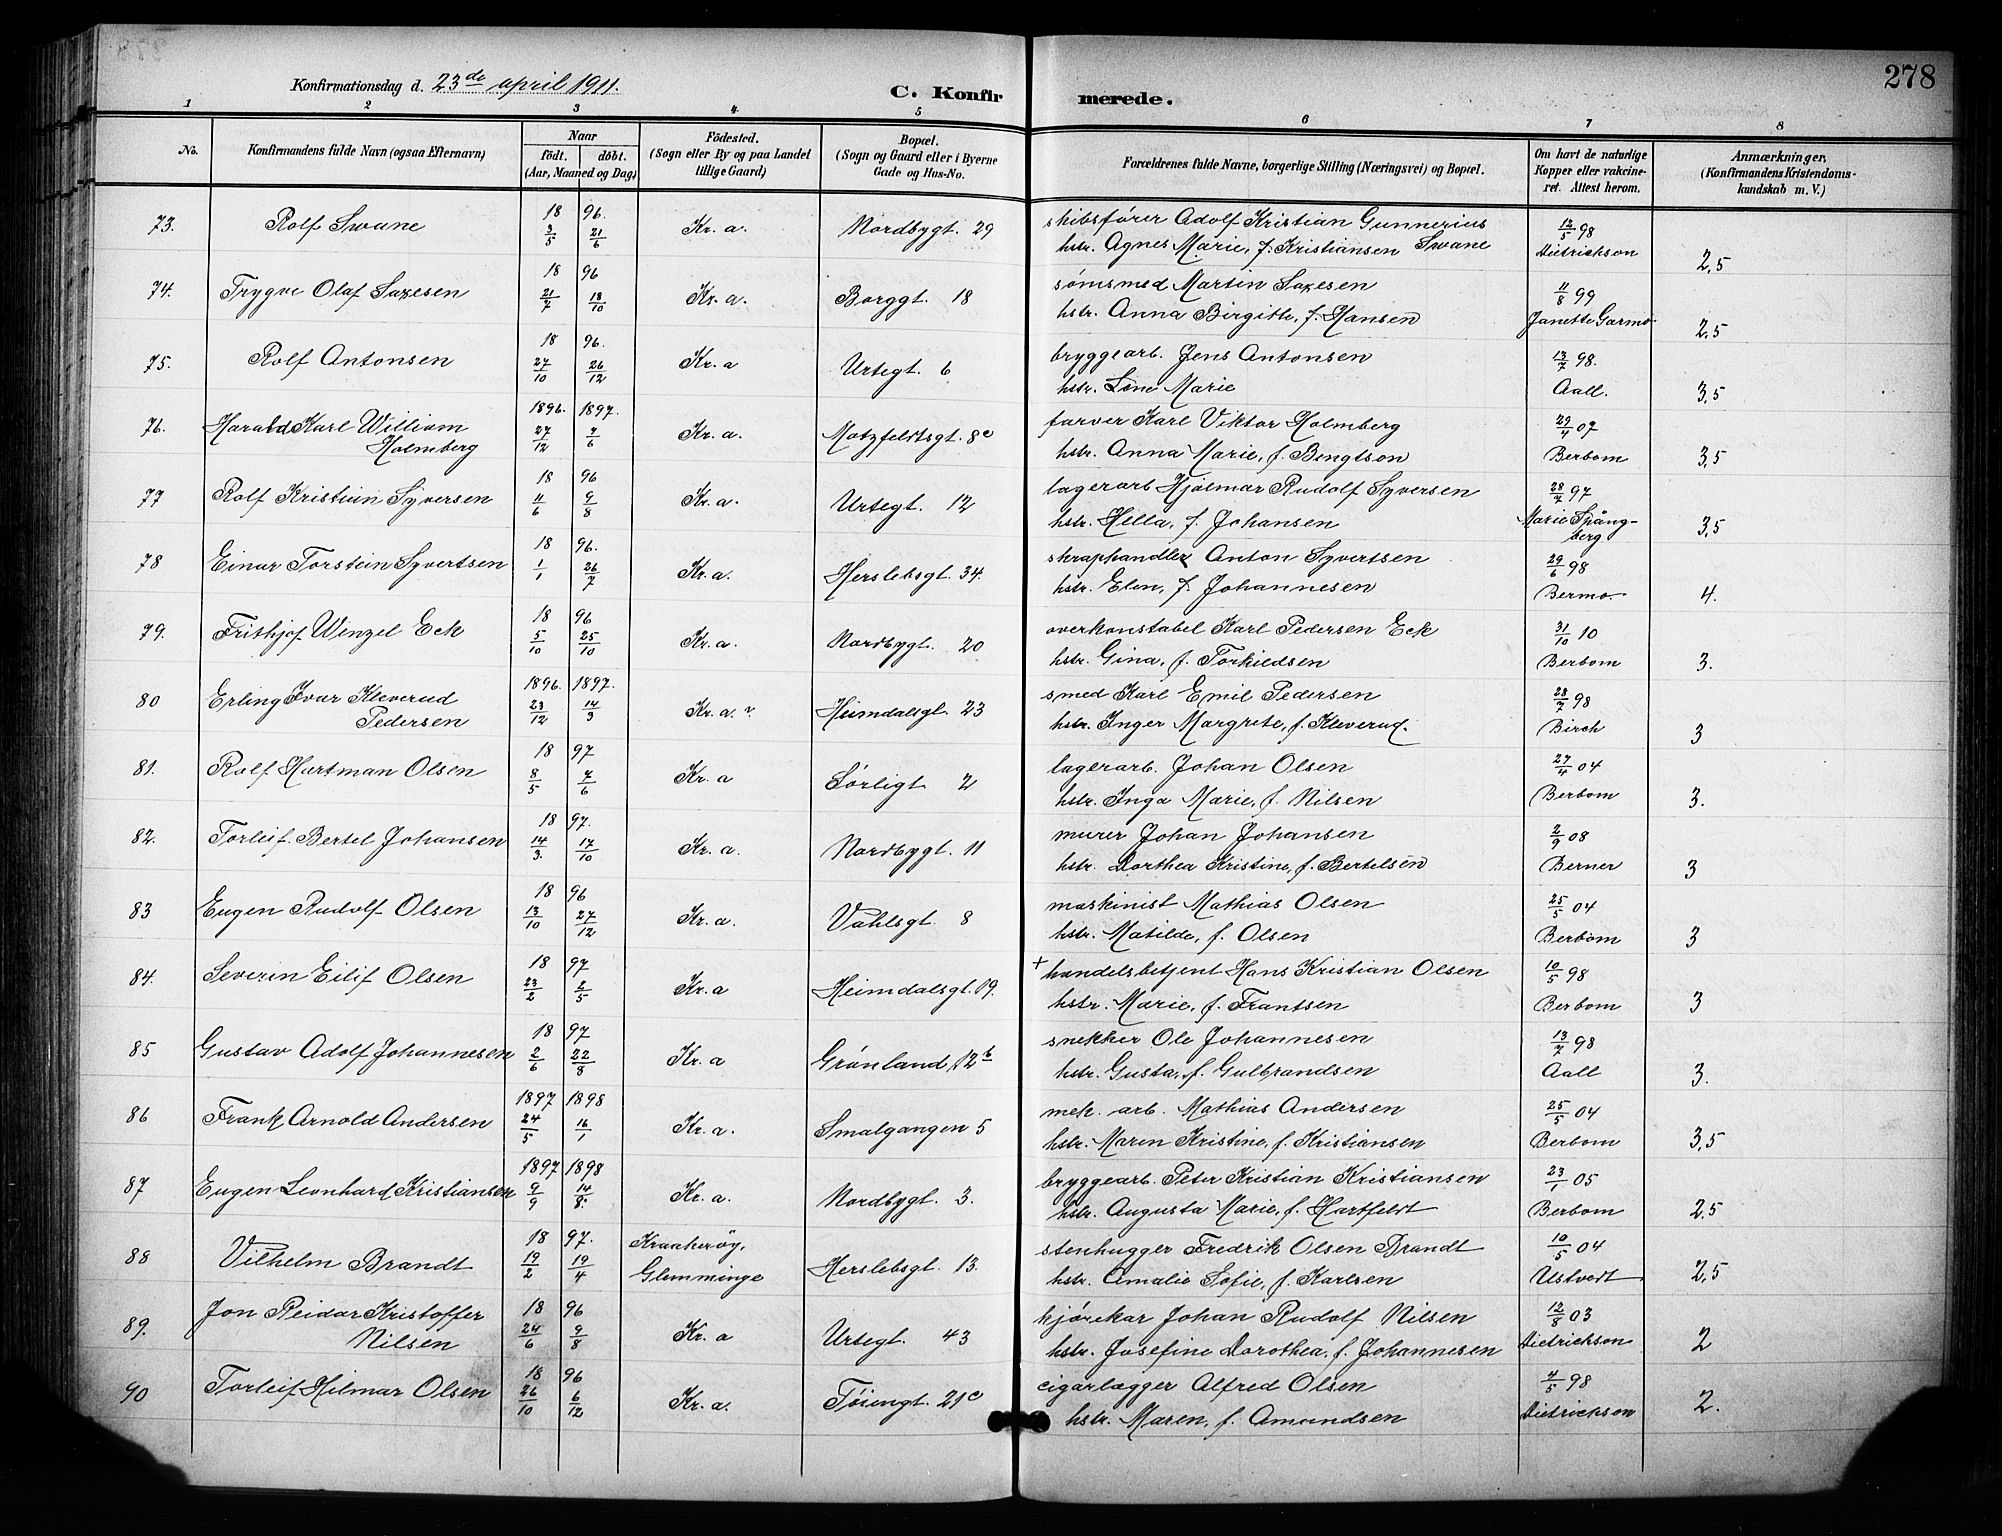 278
Konfirmationsdag d. 23de april 1911.
C. Konfirmerede.
1 2 3 4 5 6 7 8
No. Konfirmandens fulde Navn (ogsaa Efternavn) Naar født. døbt. (Aar, Maaned og Dag) Födested. (Sogn eller By og paa Landet tillige Gaard) Bopæl. (Sogn og Gaard eller i Byerne Gade og Hus-No. Forældrenes fulde Navne, borgerlige Stilling (Næringsvei) og Bopæl. Om havt de naturlige Kopper eller vakcineret. Attest herom. Anmærkninger, (Konfirmandens Kristendomskundskab m. V.)
73. Rolf Swane 18 96. 3/5 21/6 Kr. a. Nordbygt. 29 skibsfører Adolf Kristian Gunnerius 12/5 98
hstr. Agnes Marie, f. Kristiansen Swane Dietrichson 2,5
74. Trygve Olaf Saxesen 18 96 21/7 18/10 Kr. a. Borggt. 18 sømsmed Martin Saxesen 11/8 99
hstr. Anna Birgitte, f. Hansen Janette Garmo 2,5
75. Rolf Antonsen 18 96. 27/10 26/12 Kr. a Urtegt. 6 bryggearb. Jens Antonsen 13/7 98.
hstr. Line Marie Aall. 3,5
76. Harald Karl William 1896. 1897. 27/12 7/6 Kr. a. Motzfeldtsgt. 8c farver Karl Viktor Holmberg 29/4 07
Holmberg hstr. Anna Marie, f. Bengtson Berbom 3,5
77 Rolf Kristian Syversen 18 96 11/6 9/8 Kr. a. Urtegt. 12 lagerarb Hjalmar Rudolf Syversen 28/7 97
hstr. Hella, f. Johansen Marie Spångberg 3,5
78 Einar Torstein Syvertsen 18 96. 1/1 26/7 Kr. a. Herslebsgt. 34. skraphandler Anton Syvertsen 29/6 98
hstr. Elen, f. Johannesen Bermo. 4.
79. Frithjof Wenzel Eck 18 96 5/10 25/10 Kr. a. Nordbygt. 20 overkonstabel Karl Pedersen Eck 31/10 10
hstr. Gina, f. Torkildsen Berbom 3.
80 Erling Ivar Kleverud 1896. 1897. 23/12 14/3 Kr. a. Heimdalsgt. 23 smed Karl Emil Pedersen 28/7 98
Pedersen hstr. Inger Margrete, f. Kleverud. Birch 3
81. Rolf Hartman Olsen 18 97 8/5 7/6 Kr. a Sørligt. 2 lagerarb. Johan Olsen 27/4 04
hstr. Inga Marie, f. Nilsen Berbom 3.
82. Torleif. Bertel Johansen 18 97. 14/3. 17/10 Kr. a. Nordbygt. 11 murer Johan Johansen 2/9 08
hstr. Dorthea Kristine, f. Bertelsen Berner 3
83 Eugen Rudolf Olsen 18 96 13/10 27/12 Kr. a. Vahlsgt. 8 maskinist Mathias Olsen 25/5 04
hstr. Matilde, f. Olsen Berbom 3
84. Severin Eilif Olsen 18 97 23/2 2/5 Kr. a Heimdalsgt. 19. + handelsbetjent Hans Kristian Olsen 10/5 98
hstr. Marie, f. Frantsen Berbom 3
85 Gustav Adolf Johannesen 18 97 2/6 22/8 Kr. a Grønland 12b snekker Ole Johannesen 13/7 98
hstr. Gusta, f. Gulbrandsen Aall 3.
86 Frank Arnold Andersen 1897 1898 24/5 16/1 Kr. a. Smalgangen 5 mek. arb. Mathias Andersen 25/5 04
hstr. Maren Kristine, f. Kristiansen Berbom 3,5
87 Eugen Leonhard Kristiansen 1897 1898 9/9 14/8. Kr. a. Nordbygt. 3. bryggearb. Peter Kristian Kristiansen 23/1 05
hstr. Augusta Marie, f. Hartfeldt Berbom 2,5
88 Vilhelm Brandt 18 97. 19/2 19/4 Kraakerøy, Glemminge Herslebsgt. 13. stenhugger Fredrik Olsen Brandt 10/5 04
hstr. Amalie Sofie, f. Karlsen Ustvedt 2,5
89. Jon Reidar Kristoffer 18 96 24/6 9/8 Kr. a Urtegt. 43 kjørekar Johan Rudolf Nilsen 12/8 03
Nilsen hstr. Josefine Dorothea, f. Johannesen Dietrichson 2
90 Torleif Hilmar Olsen 18 96 26/10 6/12 Kr. a. Tøiengt. 21c cigarlægger Alfred Olsen 4/5 98
hstr. Maren, f. Amundsen Dietrichson 2.